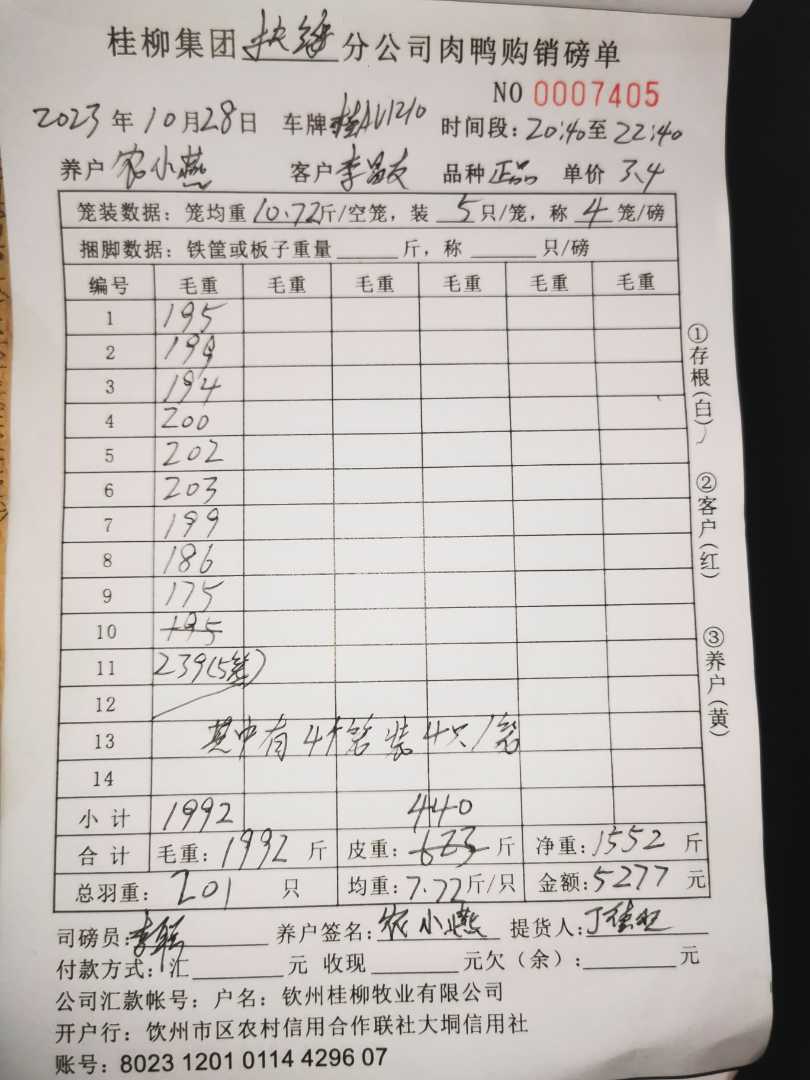 桂柳集团扶绥分公司肉鸭购销磅单
NO 0007405
2023年10月28日 车牌桂AV1210 时间段:20:40至22:40
养户 农小燕 客户 李昌友 品种 正品 单价 3.4
笼装数据:笼均重10.72斤/空笼,装 5 只/笼,称 4 笼/磅
捆脚数据:铁筐或板子重量 斤,称 只/磅
编号 毛重 毛重 毛重 毛重 毛重 毛重
1 195
2 199
3 194
4 200
5 202
6 203
7 199
8 186
9 175
10 195
11 239(5笼)
12
13 其中有4个笼装4只/笼
14
小计 1992 440
合计 毛重:1992斤 皮重:623斤 净重:1552斤
总羽重:201 只 均重:7.72斤/只 金额:5277元
司磅员: 养户签名:农小燕 提货人:
付款方式:汇 元 收现 元欠(余): 元
公司汇款帐号:户名:钦州桂柳牧业有限公司
开户行:饮州市区农村信用合作联社大垌信用社
账号:8023 1201 0114 4296 07
①存根(白)
②客户(红)
③养户(黄)